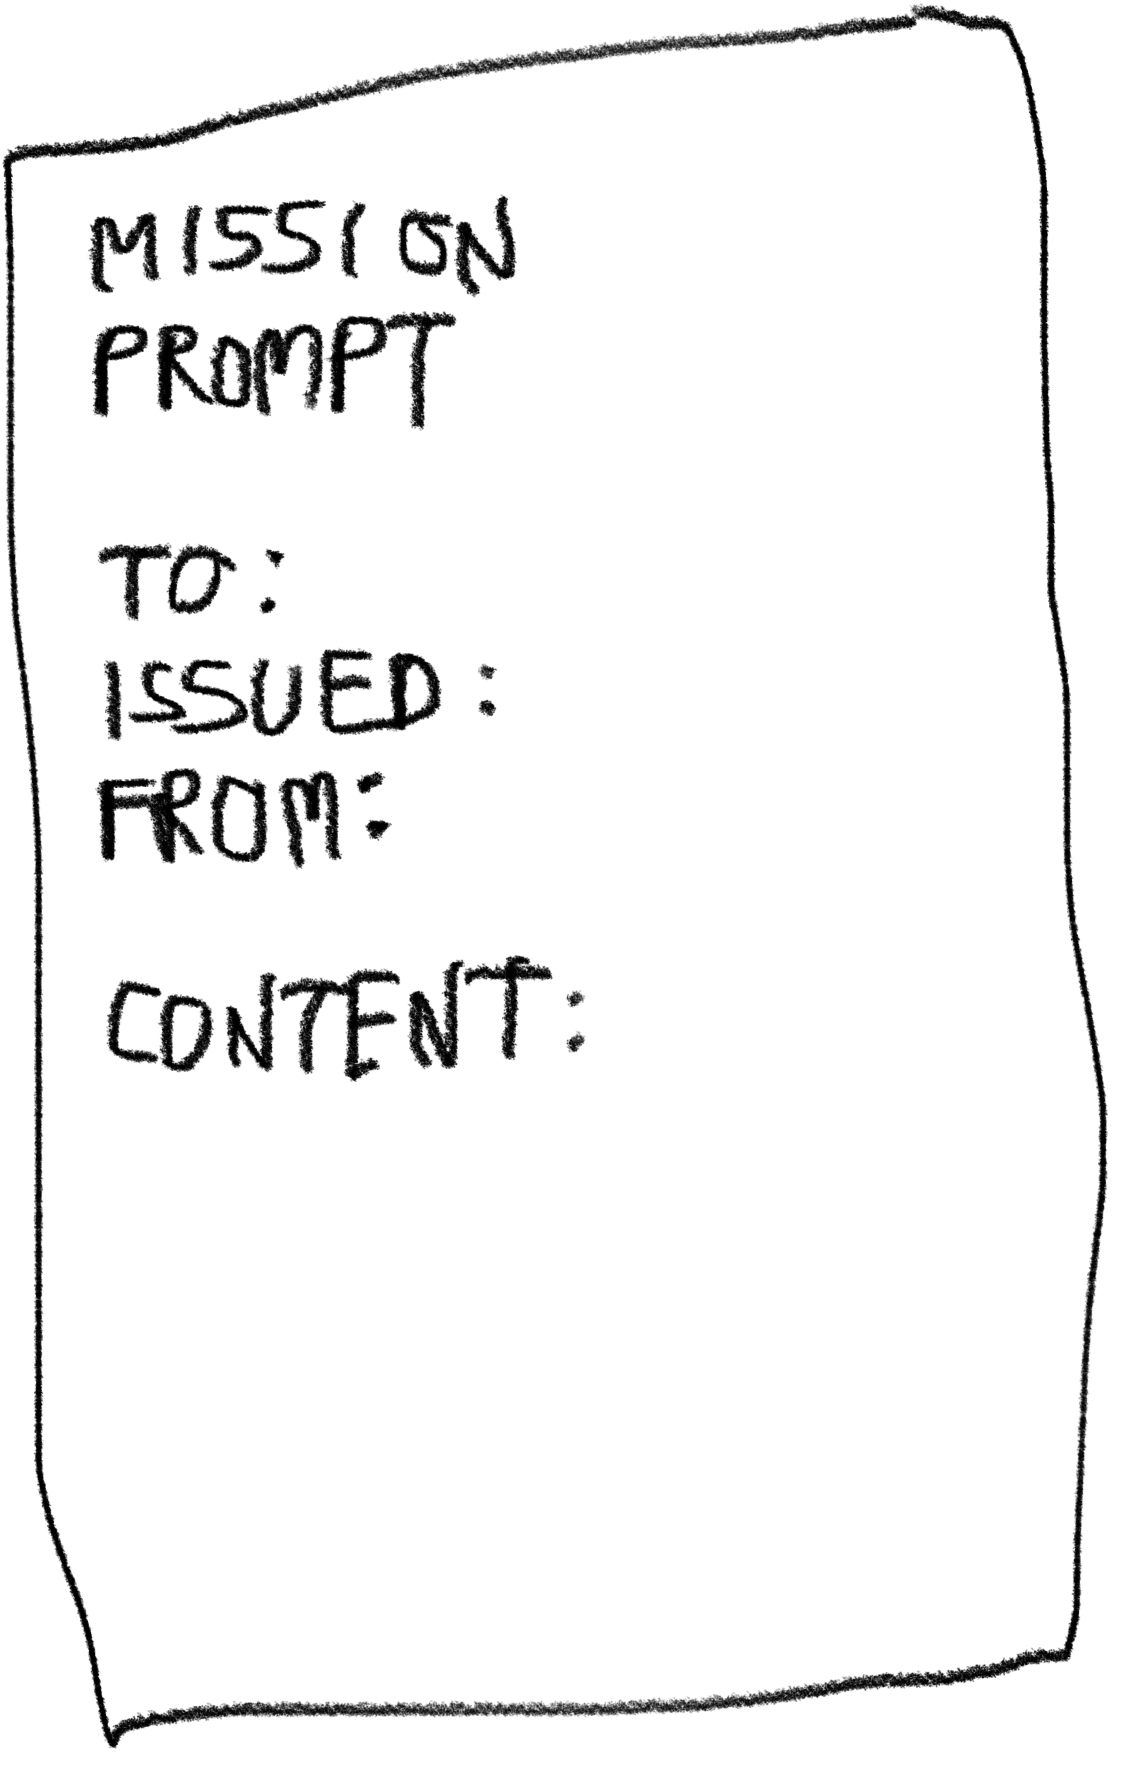 MISSION
PROMPT
TO:
ISSUED:
FROM:
CONTENT: